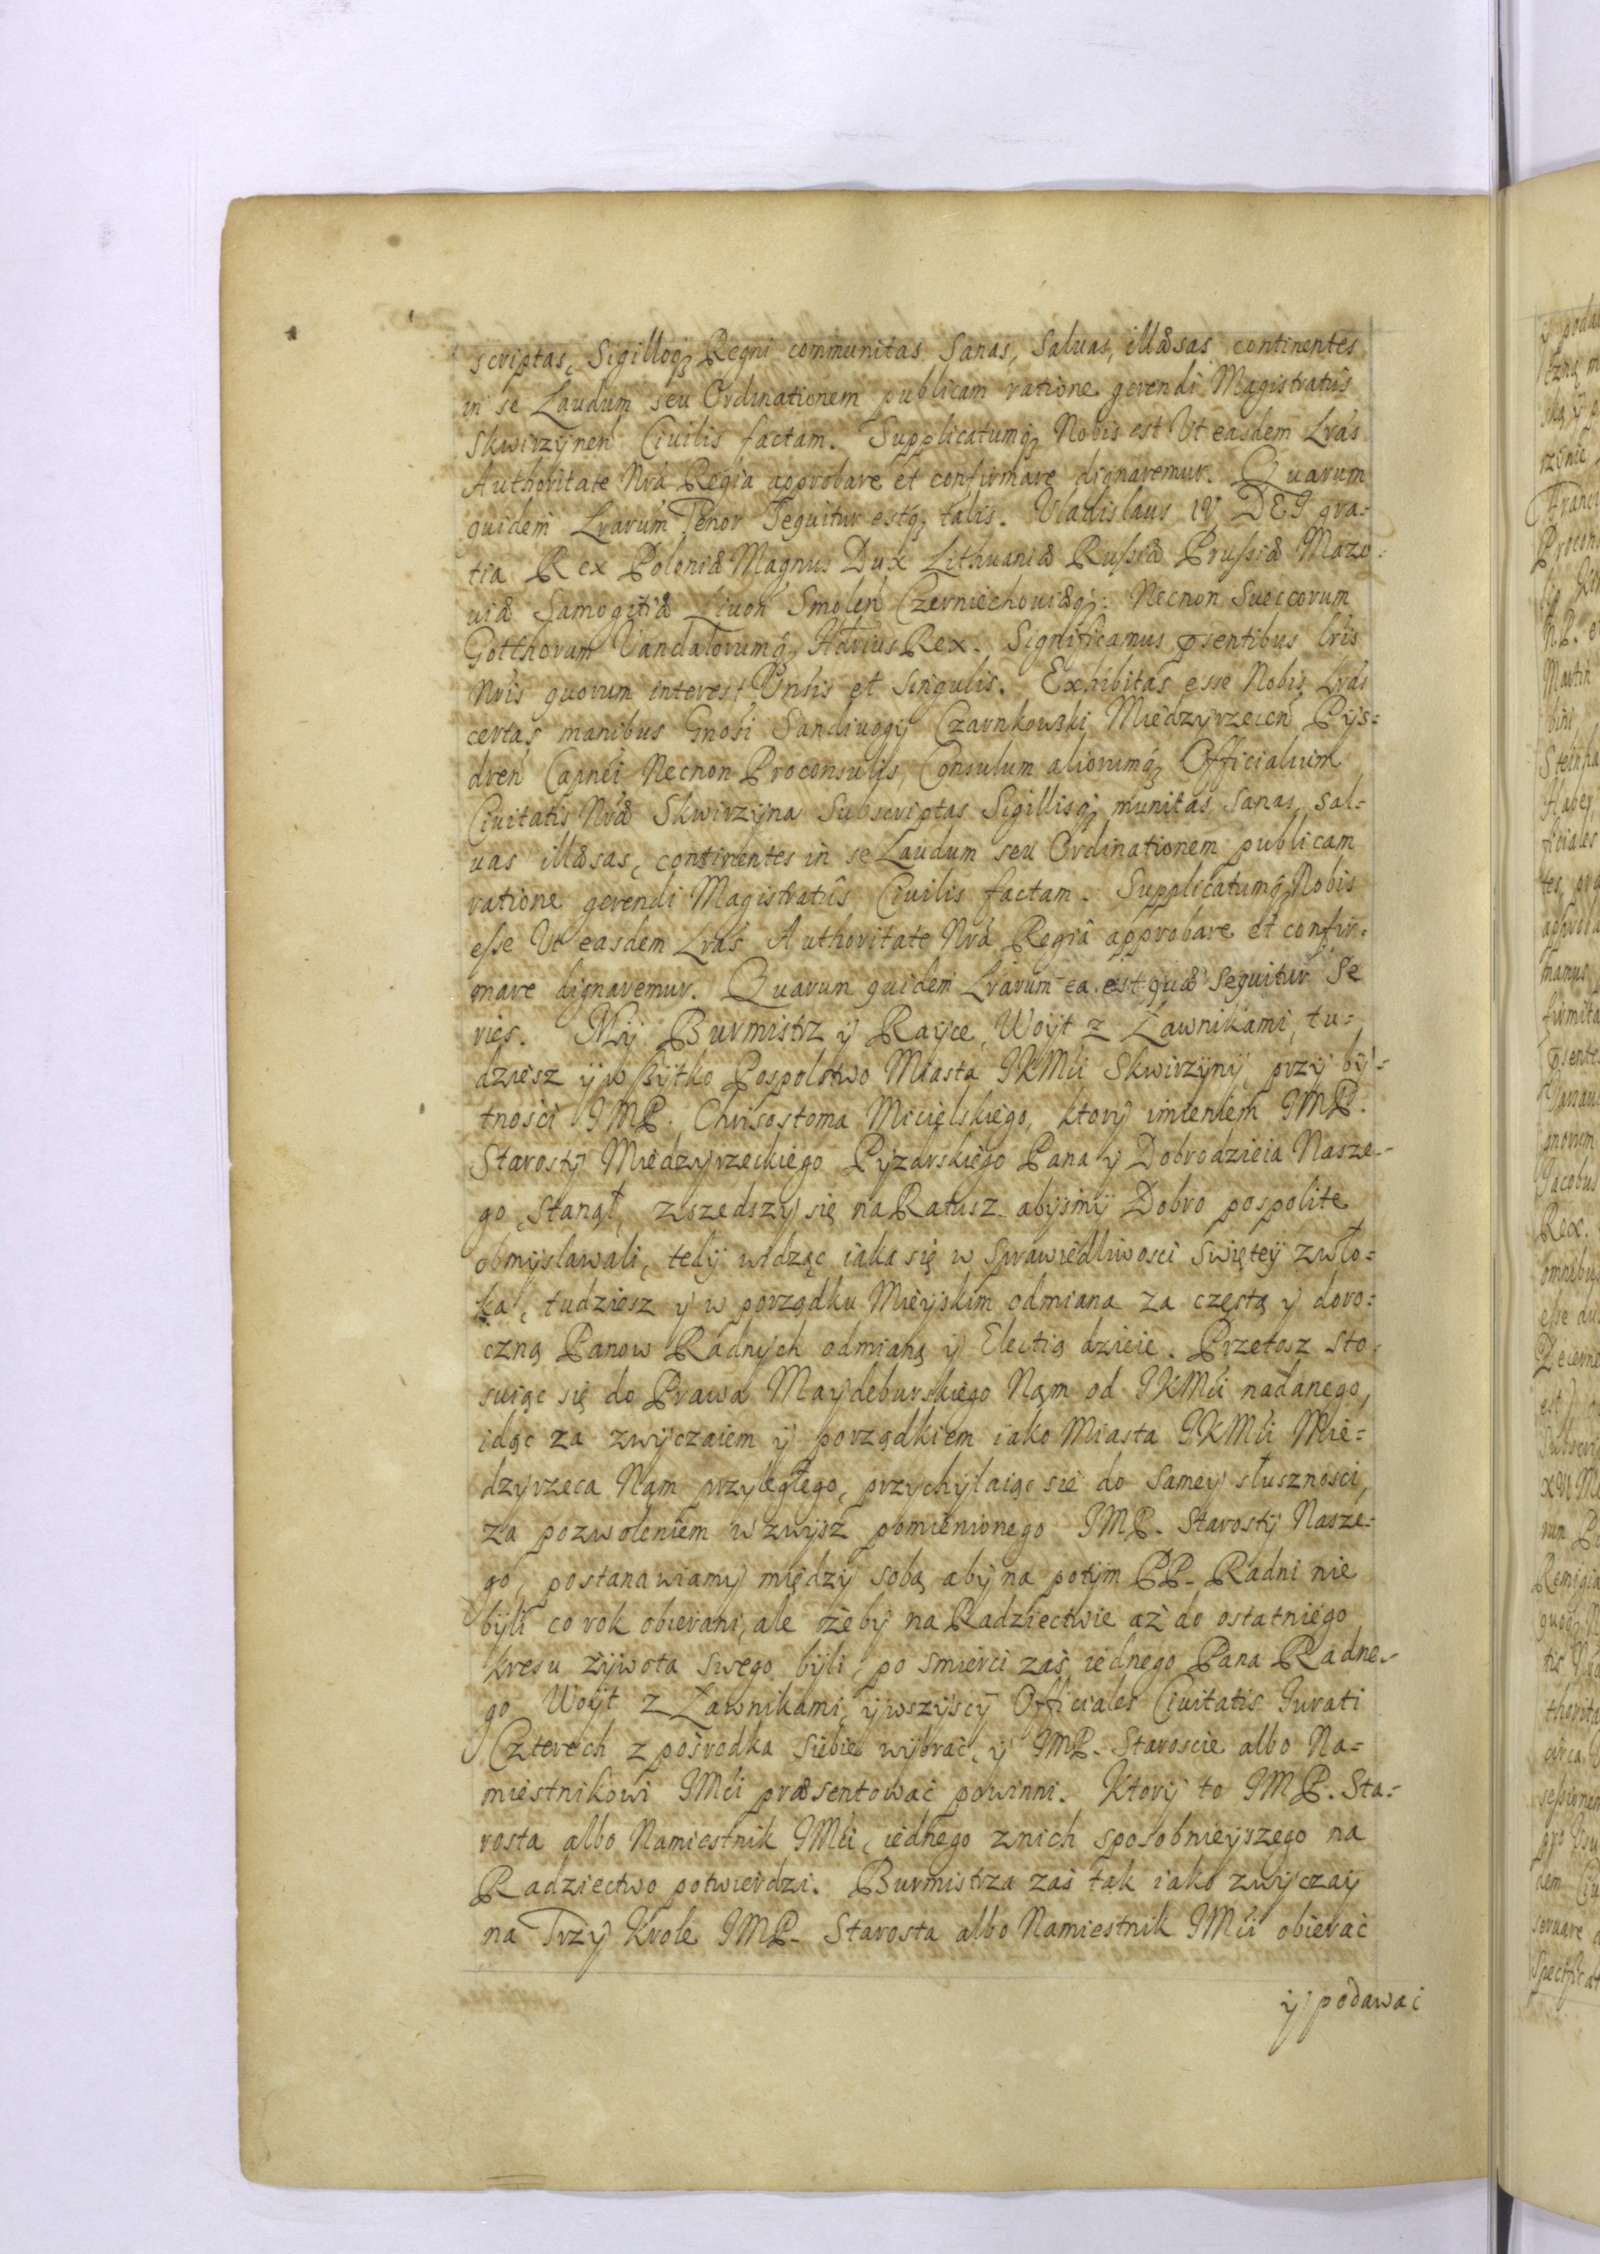 scriptas, Sigilloq3 Regni communitas Sanas, Saluas, illæsas continentes
in se Laudum seu Ordinationem publicam ratione gerendi Magistratûs
Skwirzÿnen Ciuilis factam. Supplicatumq3 Nobis est Ut easdem Lrás
Authoritate Nrá Regia approbare et confirmare dignaremur. Quarum
quidem Lrarum Tenor Sequitur estq3 talis. Vladislaus IV DEI gra-
tia Rex Poloniæ Magnus Dux Lithuaniæ Rußiæ Prußiæ Mazo-
uiæ Samogitiæ Liuon Smolen Czerniechouiæq3: Necnon Sueccorum
Gotthorum Vandalorumq3 Hdrius Rex. Significamus psentibus lris
Nris quorum interest Vnbis et Singulis. Exhibitas esse Nobis Lrás
certas manibus Gnosi Sandiuogÿ Czarnkowski Miedzyrzecen Pÿs-
dren Capnéi Necnon Proconsulis, Consulum aliorumq3 Officialium
Ciuitatis Nræ Skwirzÿna Subscriptas Sigillisq3 munitas, Sanas, Sal-
uas illæsas, continentes in se Laudum seu Ordinationem publicam
ratione gerendi Magistratûs Ciuilis factam. Supplicatumq3 Nobis
eße Ut easdem Lrás Authoritate Nrá Regiâ approbare et confir-
mare dignaremur. Quarum quidem Lrarum ea est quæ sequitur Se
ries. Mÿ Burmistrz ÿ Raÿce, Woÿt z Ławnikami, tu-
dziesz ÿ wßÿtko Pospolstwo Miasta JKMći Skwirzÿnÿ przÿ bÿ-
tnosci JMP. Chrisostoma Micielskiego, ktorÿ imieniem JMP.
Starostÿ Miedzÿrzeckiego Pÿzdrskiego Pana ÿ Dobrodzieia Nasze-
go, stanął, zszedszÿ się na Ratusz abÿsmÿ Dobro pospolite
obmÿslawali, tedÿ widząc iaka się w Sprawiedliwosci Swiętey zwło-
ka, tudziesz ÿ w porządku Mieÿskim odmiana za częstą ÿ doro-
czną Panow Radnÿch odmianą ÿ Electią dzieie. Przetosz sto-
suiąc się do Prawa Maÿdeburskiego Nąm od JKMći nadanego,
idąc za zwÿczaiem ÿ porządkiem iako Miasta JKMći Mie-
dzÿrzeca Nąm przÿległego, przÿchÿlaiąc sie do Samey słusznosci,
za pozwoleniem wzwÿsz pomienionego JMP. Starostÿ Nasze-
go, postanawiamÿ międzÿ sobą abÿ na potÿm PP. Radni nie
bÿli co rok obierani, ale żebÿ na Radziectwie aż do ostatniego
kresu żÿwota swego bÿli, po smierci zaś iednego Pana Radne-
go Woÿt z Ławnikami, ÿ wszÿscÿ Officiales Ciuitatis Iurati
Czterech z pośrodka Siebie wÿbrać, ÿ JMP. Staroscie albo Na-
miestnikowi JMći præsentować powinni. Ktorÿ to JMP. Sta-
rosta albo Namiestnik JMći, iednego znich sposobnieÿszego na
Radziectwo potwierdzi. Burmistrza zaś tak iako zwÿczaÿ
na Trzÿ Krole JMP. Starosta albo Namiestnik JMći obierać
ÿ podawać